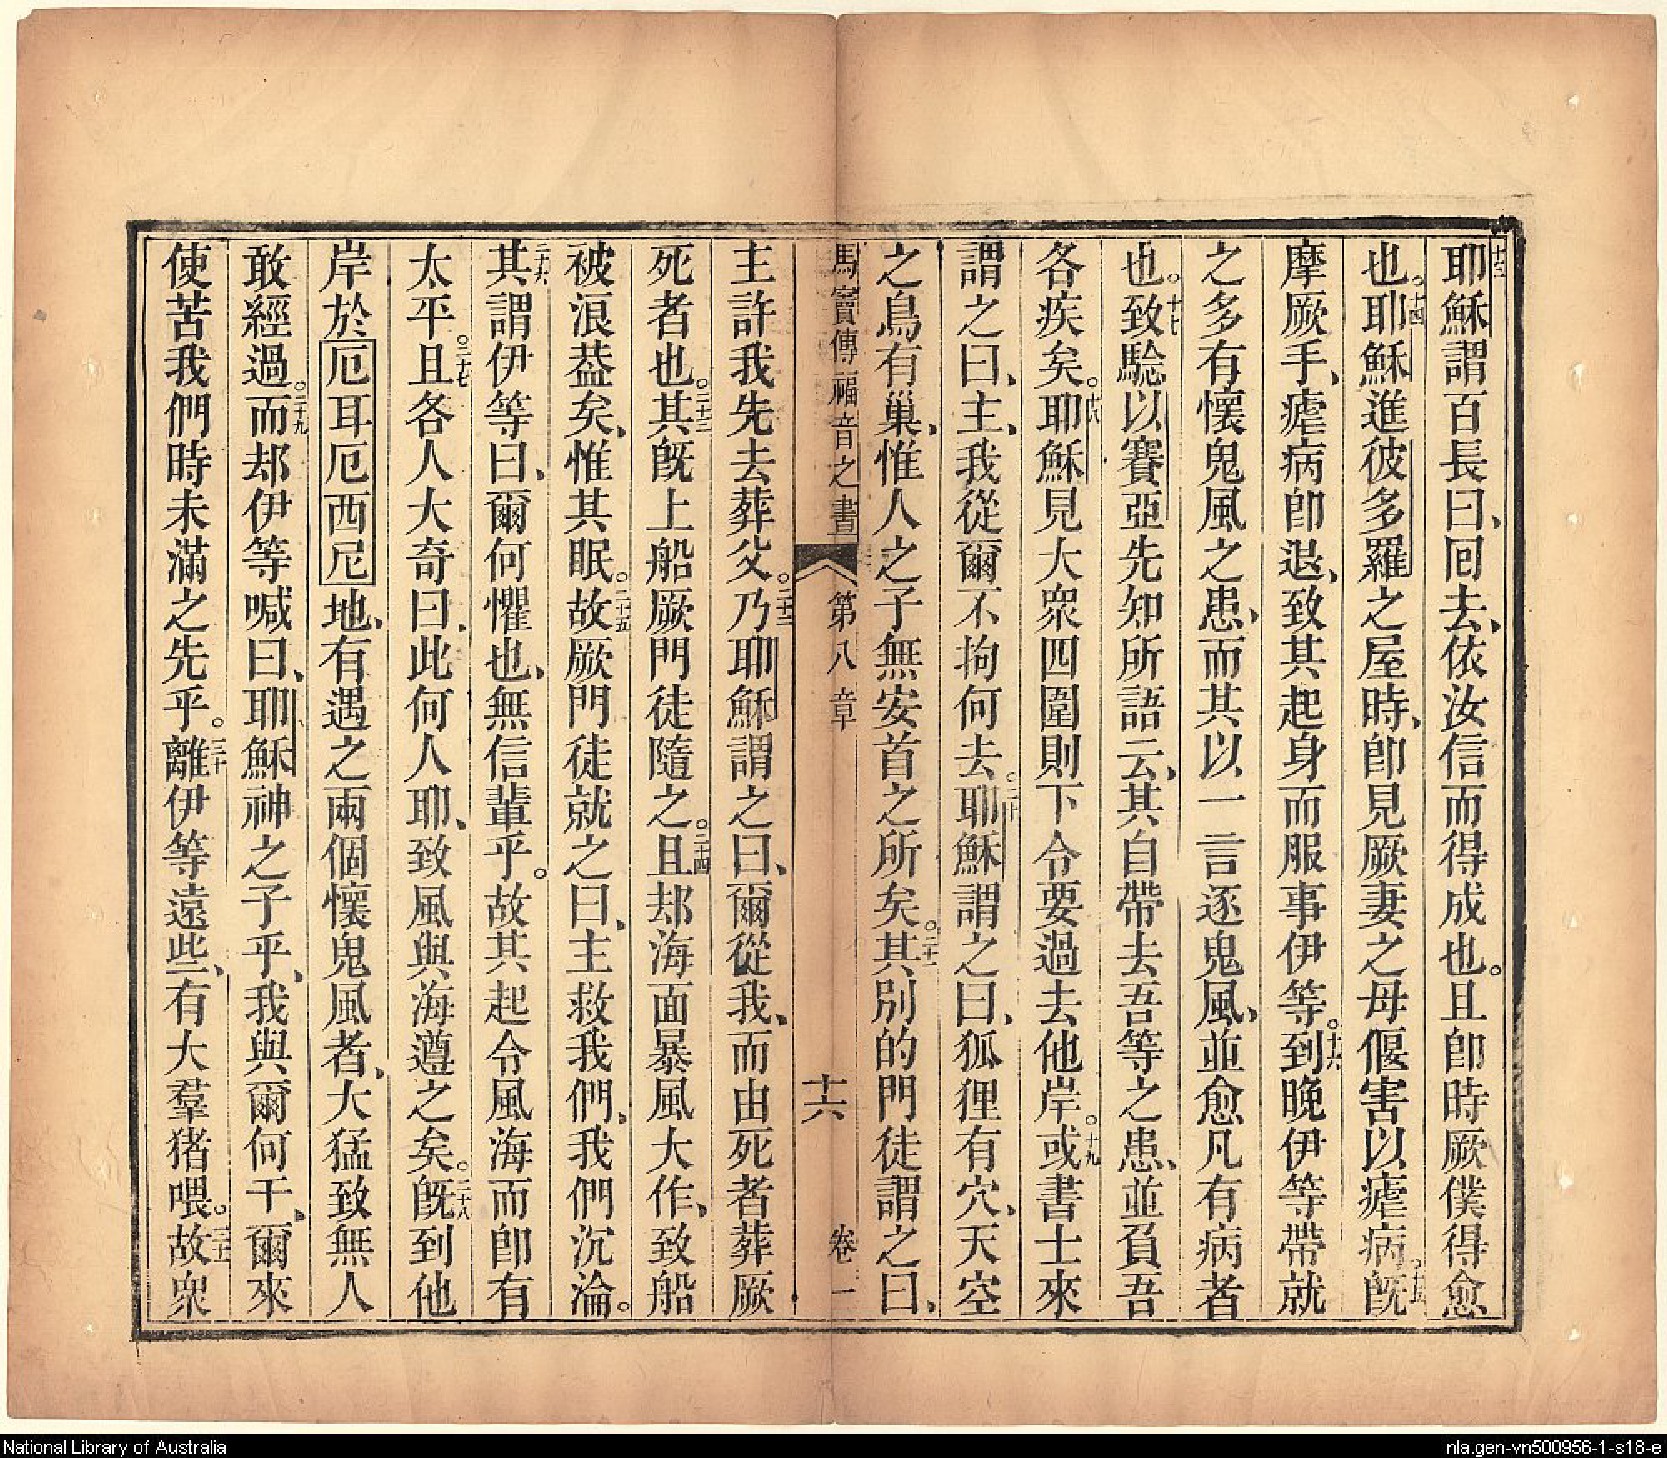 十三耶穌謂百長曰、回去、依汝信而得成也。且卽時厥僕得愈
也。十四耶穌進彼多羅之屋時、卽見厥妻之母偃害以瘧病。十五旣
摩厥手、瘧病卽退、致其起身而服事伊等。十六到晚伊等帶就
之多有懷鬼風之患、而其以一言逐鬼風、並愈凡有病者
也。十七致騐以賽亞先知所語云、其自帶去吾等之患、並負吾
各疾矣。十八耶穌見大衆四圍則下令要過去他岸。十九或書士來
謂之曰、主、我從爾不拘何去。二十耶穌謂之曰、狐狸有穴、天空
之鳥有巢、惟人之子無安首之所矣。二十一其別的門徒謂之曰、
馬竇傳福音之書 第八章 十六 卷一
主許我先去葬父。二十二乃耶穌謂之曰、爾從我、而由死者葬厥
死者也。二十三其旣上船厥門徒隨之。二十四且却海面暴風大作、致船
被浪葢矣、惟其眠。二十五故厥門徒就之曰、主救我們、我們沉淪。
二十六其謂伊等曰、爾何懼也、無信輩乎。故其起令風海而卽有
太平。二十七且各人大奇曰、此何人耶、致風與海遵之矣。二十八旣到他
岸於厄耳厄西尼地、有遇之兩個懷鬼風者、大猛致無人
敢經過。二十九而却伊等喊曰、耶穌神之子乎、我與爾何干、爾來
使苦我們時未滿之先乎。三十離伊等遠些、有大羣猪喂。三十一故衆
National Library of Australia
nla.gen-vn500956-1-s18-e